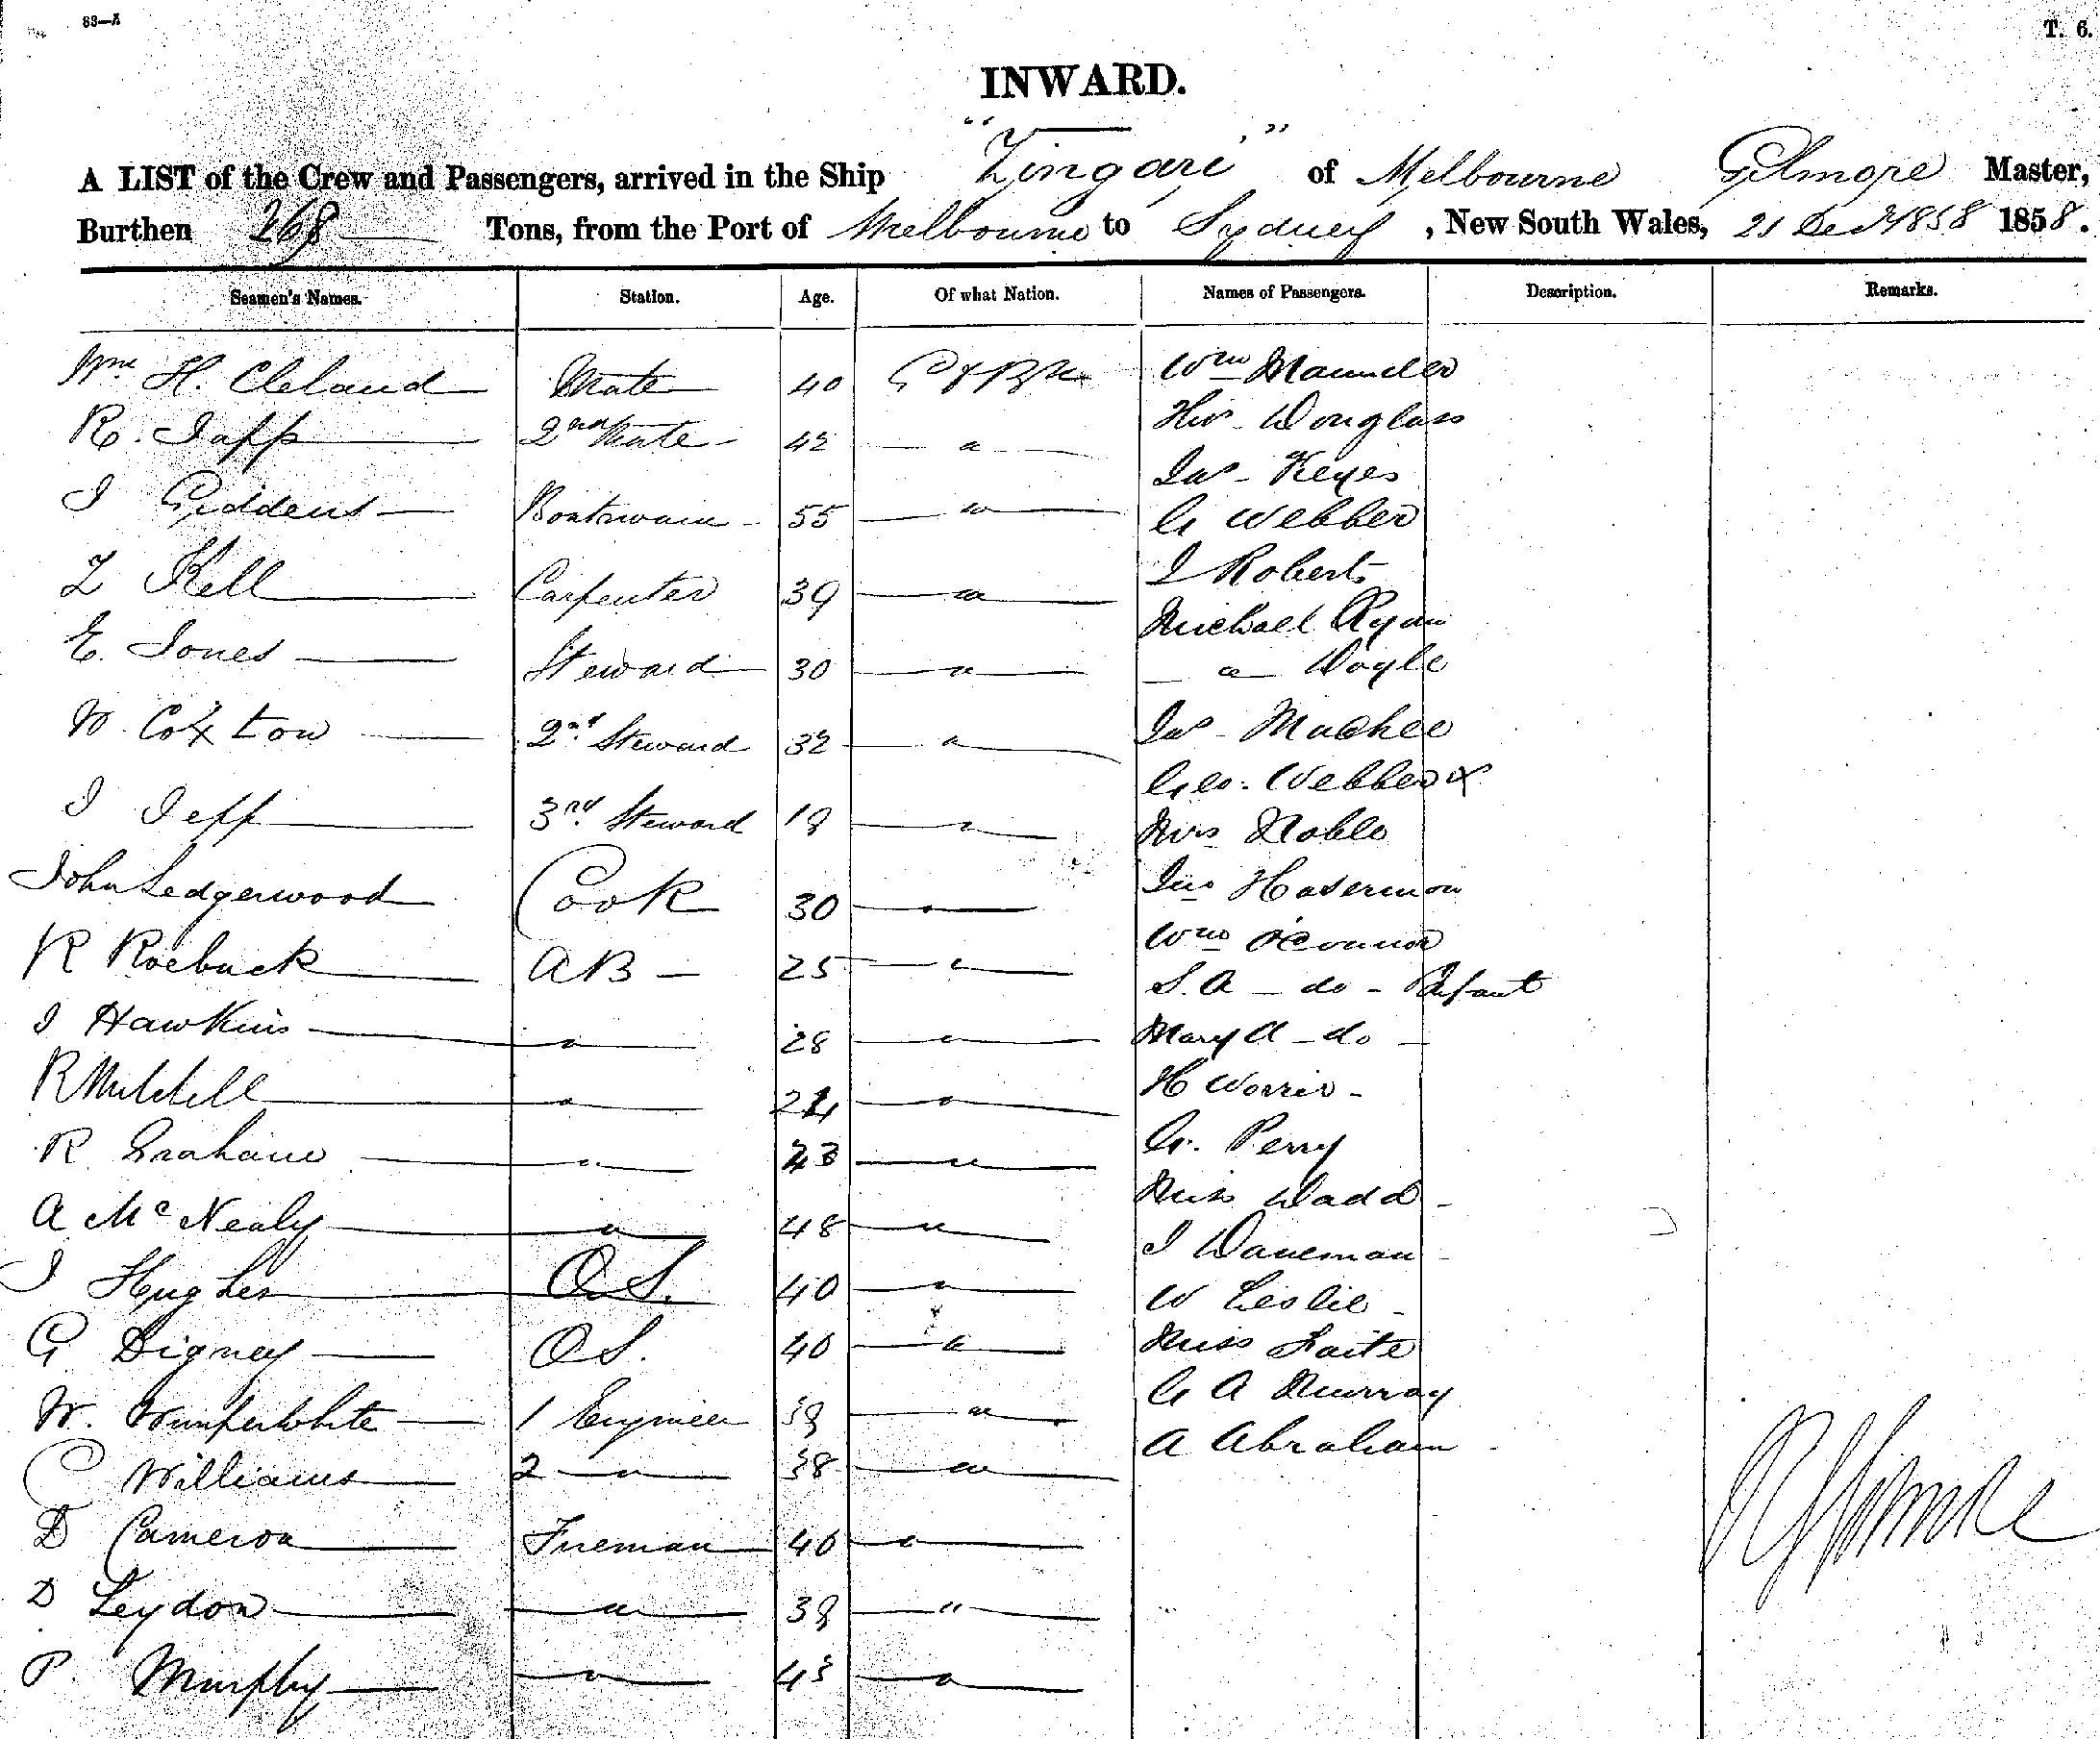 83—A
T. 6.
INWARD.
A LIST of the Crew and Passengers, arrived in the Ship "Zingari" of Melbourne Gilmore Master,
Burthen 268 Tons, from the Port of Melbourne to Sydney, New South Wales, 21 Decr 1858 1858.
Seamen's Names. Station. Age. Of what Nation. Names of Passengers. Description. Remarks.
Wm H. Cleland Mate 40 Wm Maunder
R. Tapp 2nd Mate 42 " Douglass
J Giddens Boatswain 55 " Jas Keyes
G Webber
Z Kell Carpenter 39 " J Roberts
Michael Ryan
E. Jones Steward 30 " — " — Doyle
W. Coxton 2nd Steward 32 " Jas Mackee
Geo. Webber x
J Jeff 3rd Steward 18 " Mrs Noble
John Ledgerwood Cook 30 " Jno Haserman
R Roebuck AB — 25 " Wm O'Connor
S. A — do — Infant
J Hawkins " 28 " Mary A — do —
R Mitchell " 24 " H Worrir -
R Grahame " 23 " G. Perry
A McNealy " 48 " Miss Dadd -
J Hughes O.S. 40 " J Daneman
W Leslie -
G Digney O.S. 40 " Miss Laite
W. Wimperwhite 1 Engineer 38 " G A Murray
C Williams 2 " 38 " A Abraham
D Cameron Fireman 40 "
D Leydon " 38 "
P. Murphy " 43 "
Gilmore